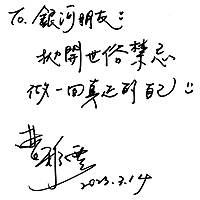 To. 銀河朋友:
拋開世俗禁忌
做一回真正的自己
2023.3.14